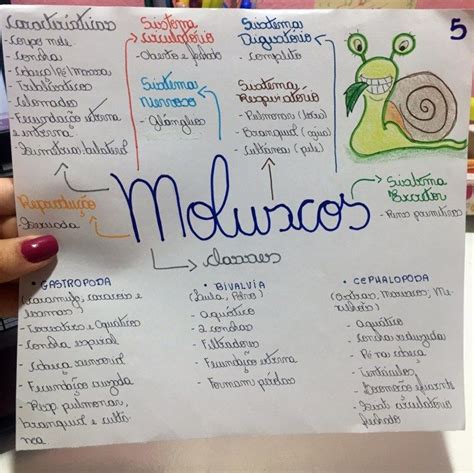 Características
- Corpo mole
- Concha
- Cabeça/Pé/Massa
- Triblásticos
- Celomados
- Fecundação externa
e interna
- Simetria bilateral
Sistema
circulatório
- Aberto e fechado
Sistema
Nervoso
- Gânglios
Sistema
Digestório
- Completo
Sistema
Respiratório
- Pulmonar
- Branquial (água)
- Cutânea (pele)
5
Sistema
Excretor
- Rins primitivos
Reprodução
Moluscos
classes
• GASTROPODA
(Caramujo, caracóis e
lesmas)
- Terrestres e Aquáticos
- Concha espiral
- Cabeça sensorial
- Fecundação cruzada
- Resp pulmonar,
branquial e cutâ
nea
• BIVALVIA
- Aquático
- 2 conchas
- Filtradores
- Fecundação externa
- Formam pérolas
• CEPHALOPODA
- Aquático
- Concha reduzida
- Pé na cabeça
- Tentáculos
- Locomoção eficiente
- Sist circulatório
fechado